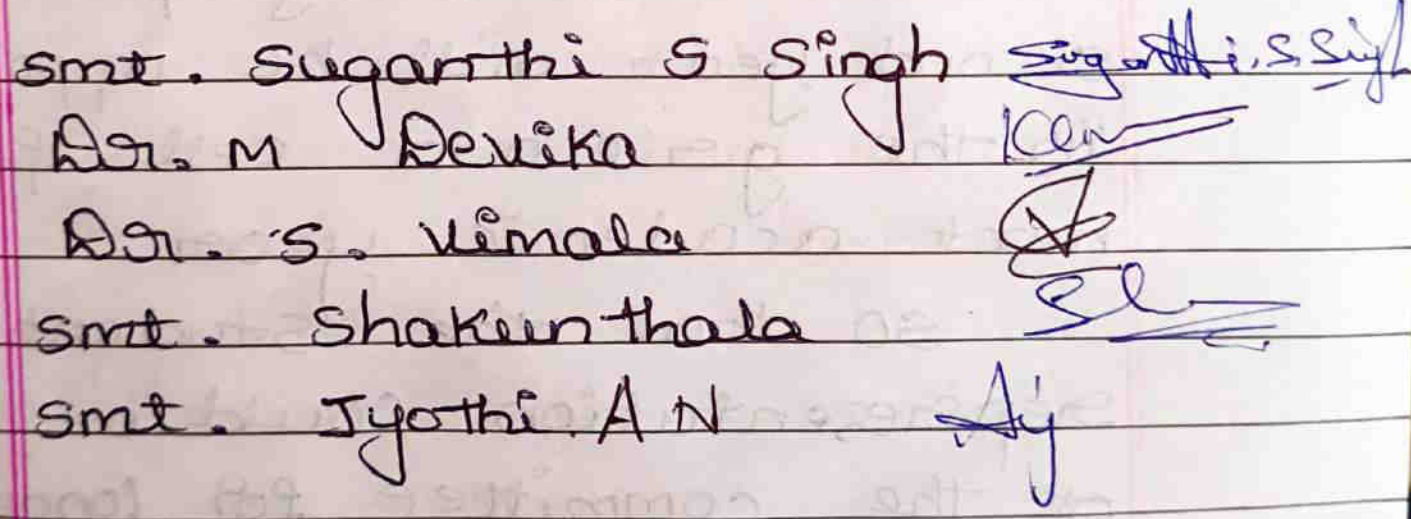 Smt. Suganthi S Singh Suganthi.S.Singh
Dr. M Devika
Dr. S. Vimala
Smt. Shakunthala
Smt. Jyothi. A N Aj